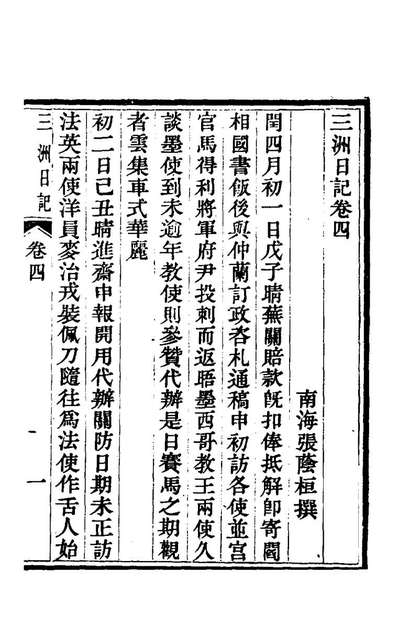 三洲日記卷四
南海張蔭桓撰
閏四月初一日戊子晴蕪關賠款旣扣俸抵解卽寄閻
相國書飯後與仲蘭訂政咨札通稿申初訪各使並宮
官馬得利將軍府尹投刺而返晤墨西哥教王兩使久
談墨使到未逾年教使則參贊代辦是日賽馬之期觀
者雲集車式華麗
初二日己丑晴進齋申報開用代辦關防日期未正訪
法英兩使洋員麥治戎裝佩刀隨往爲法使作舌人始
三洲日記
卷四
一